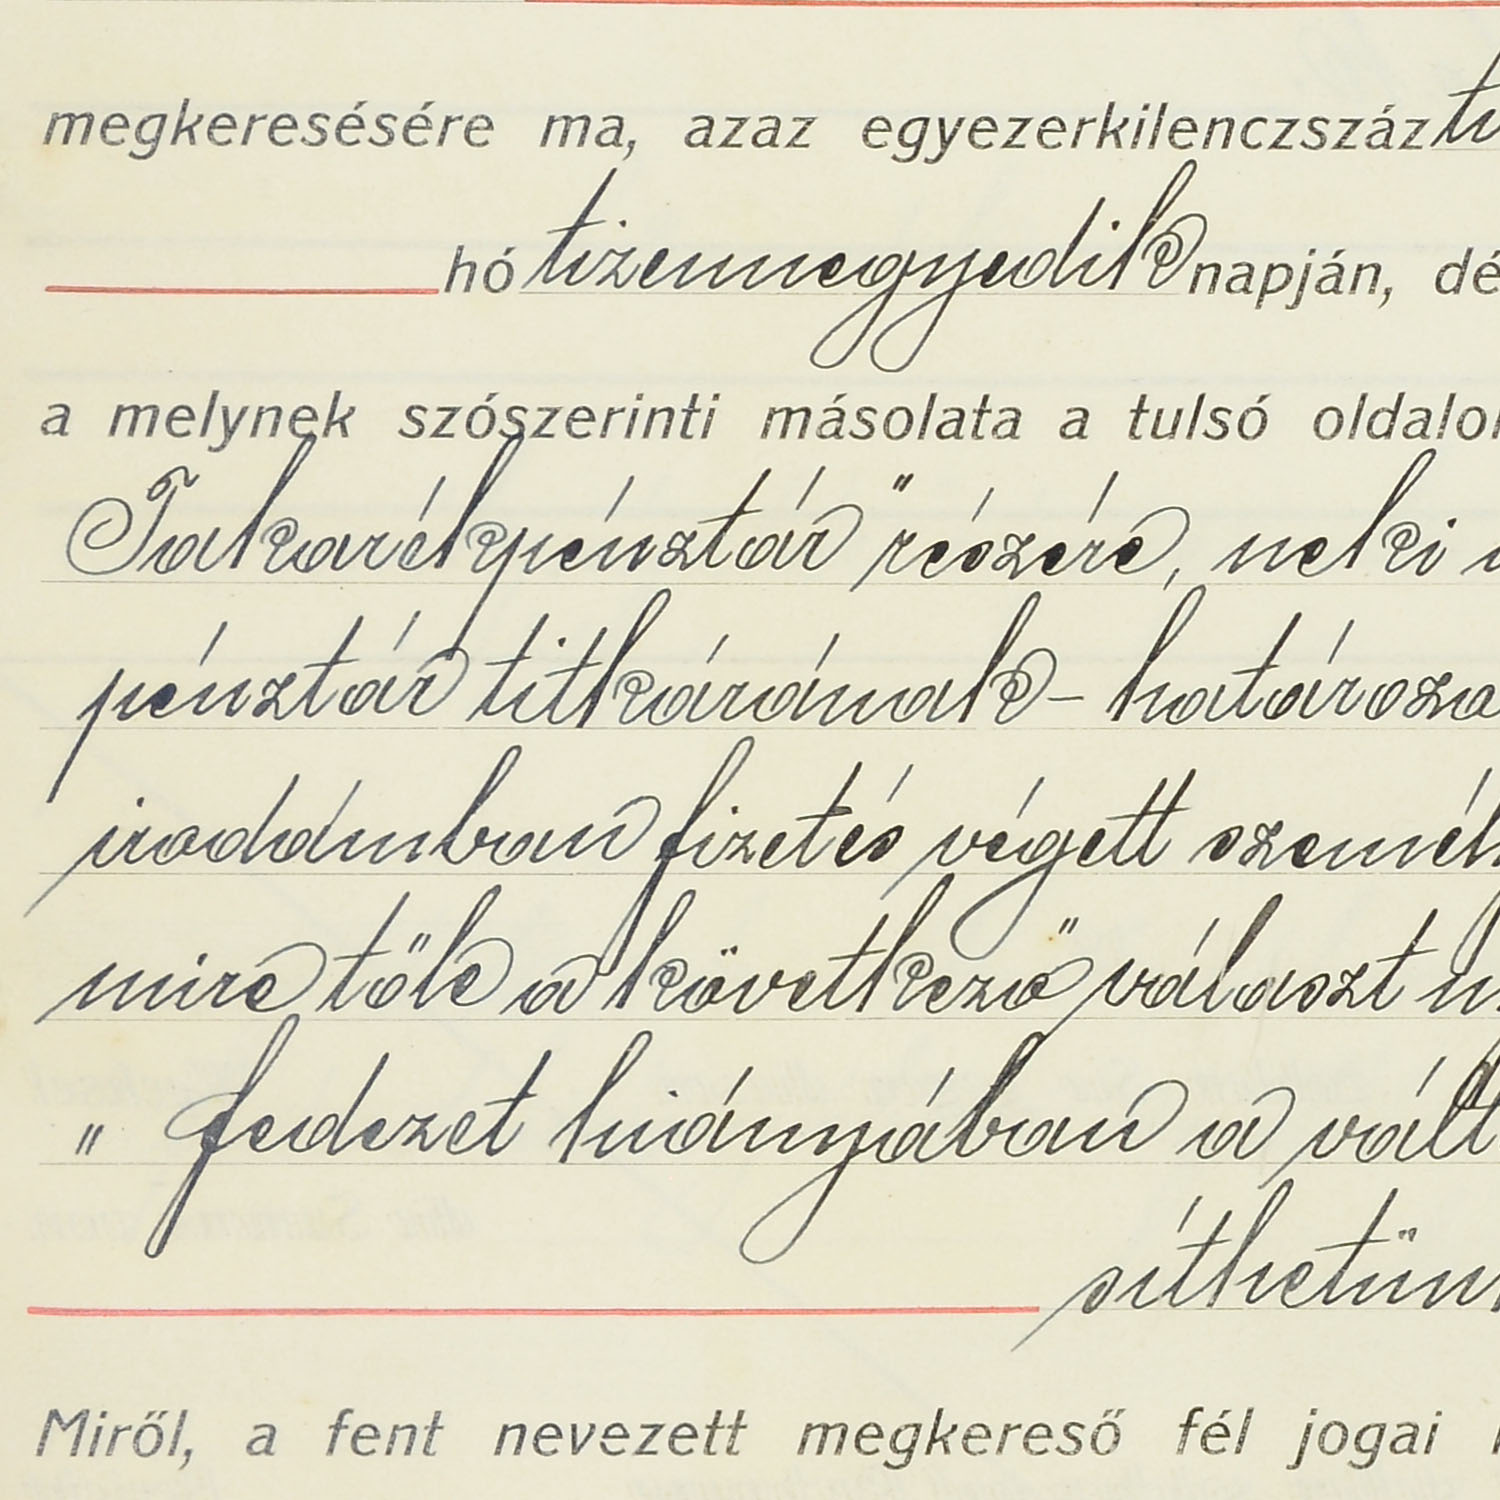 megkeresésére ma, azaz egyezerkilenczszáz
hó tizennegyedik napján, dé
a melynek szószerinti másolata a tulsó oldalon
Takarékpénztár" részére, neki
pénztár titkárának - határoza
irodámban fizetés végett személ
mire tőle a következő választ
" fedezet hiányában a vált
síthetün
Miről, a fent nevezett megkereső fél jogai